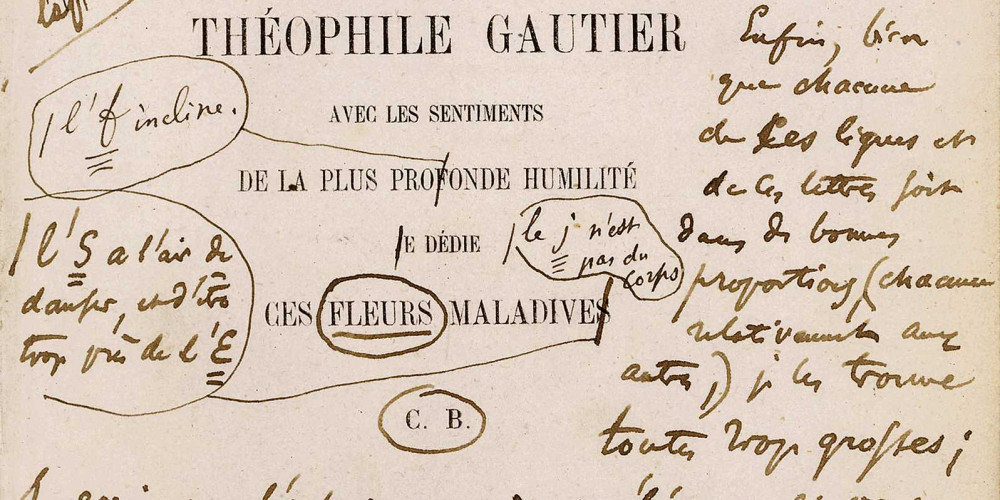 THÉOPHILE GAUTIER
AVEC LES SENTIMENTS
DE LA PLUS PROFONDE HUMILITÉ
JE DÉDIE
CES FLEURS MALADIVES
C. B.
l'f incline.
l'S a l'air de
danser, et d'être
trop près de l'E
le j n'est
pas du
corps
Enfin, bien
que chacune
de ces lignes et
de ces lettres soit
dans de bonnes
proportions (chacune
relativement aux
autres,) je les trouve
toutes trop grosses ;